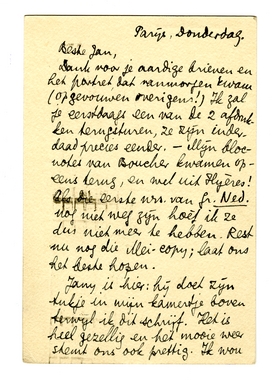 Parijs, Donderdag.
Beste Jan,
Dank voor je aardige brieven en
het portret dat vanmorgen kwam
(opgevouwen overigens!) Ik zal
je eerstdaags een van de 2 afdruk-
ken terugsturen, ze zijn inder-
daad precies eender. – Mijn bloc-
notes van Boucher kwamen op-
eens terug, en wel uit Hyères!
Als die eerste nrs. van Gr. Ned.
nog niet weg zijn hoef ik ze
dus niet meer te hebben. Rest
nu nog die Mei-copy; laat ons
het beste hopen.
Jany is hier: hij doet zijn
tukje in mijn kamertje boven
terwijl ik dit schrijf. Het is
heel gezellig en het mooie weer
stemt ons ook prettig. Ik wou